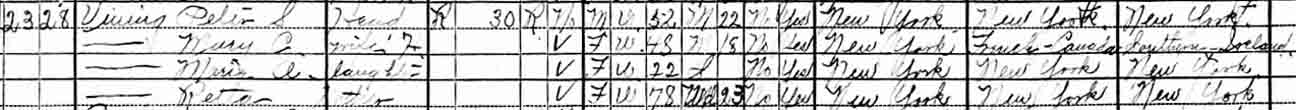 23 28 Vining Peter S. Head R 30 R No M W 52 M 22 No Yes New York New York New York
— Mary C. wife H V F W 48 M 18 No Yes New York French-Canada Northern Ireland
— Marie A. daughter V F W 22 S No Yes New York New York New York
— Reta V F W 78 Wd 23 No Yes New York New York New York